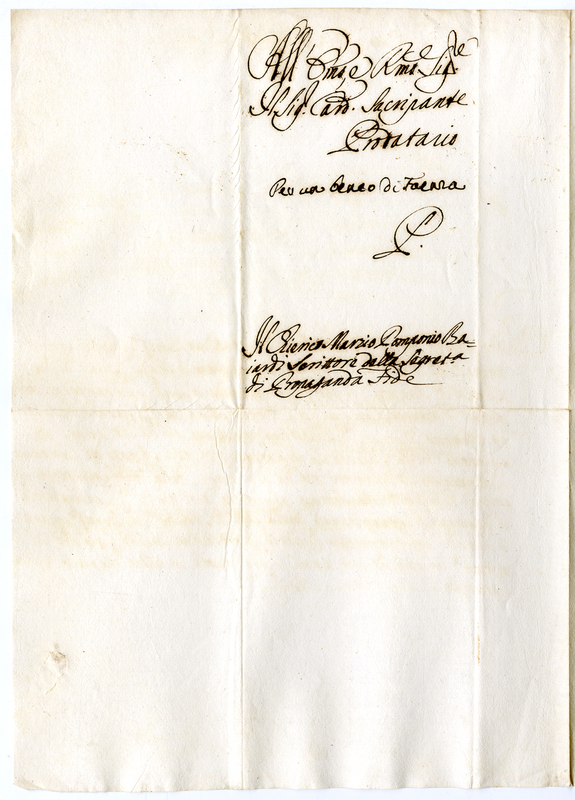 All' Emo, e Rmo Sigre
Il Sig. Card. Sacripante
Prodatario
Per un beneo di Faenza
P.
Il Chierico Marzio Pomponio Ba-
iardi Scrittore della Segreta
di Propaganda Fide